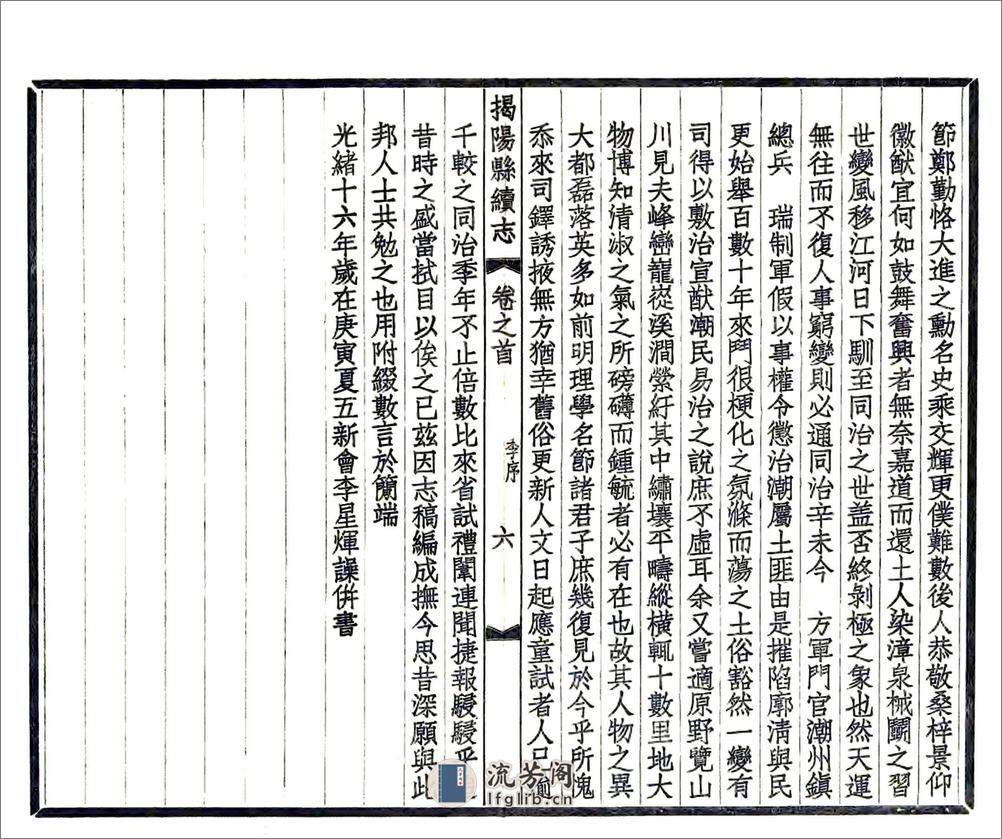 節鄭勤恪大進之勳名史乘交輝更僕難數後人恭敬桑梓景仰
徽猷宜何如鼓舞奮興者無奈嘉道而還土人染漳泉械鬭之習
世變風移江河日下馴至同治之世盖否終剝極之象也然天運
無往而不復人事窮變則必通同治辛未今　方軍門官潮州鎮
總兵　瑞制軍假以事權令懲治潮屬土匪由是摧陷廓清與民
更始舉百數十年來鬥很梗化之氛滌而蕩之土俗豁然一變有
司得以敷治宣猷潮民易治之說庶不虛耳余又嘗適原野覽山
川見夫峰巒巃嵸溪澗縈紆其中繡壤平疇縱橫輒十數里地大
物博知清淑之氣之所磅礴而鍾毓者必有在也故其人物之異
大都磊落英多如前明理學名節諸君子庶幾復見於今乎所愧
忝來司鐸誘掖無方猶幸舊俗更新人文日起應童試者人
揭陽縣續志　卷之首　李序　六
千較之同治季年不止倍數比來省試禮闈連聞捷報駸駸乎
昔時之盛當拭目以俟之已茲因志稿編成撫今思昔深願與此
邦人士共勉之也用附綴數言於簡端
光緒十六年歲在庚寅夏五新會李星煇譔併書
流芳阁
lfglib.cn